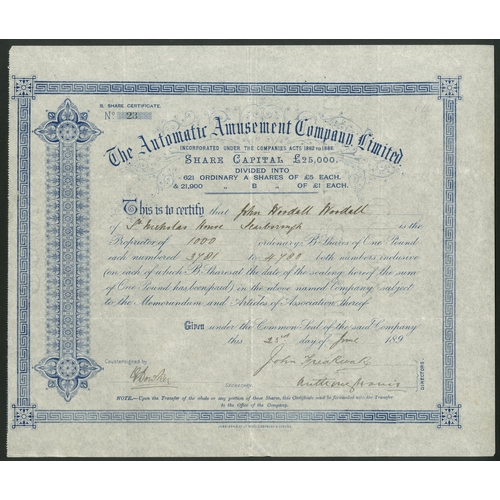 B. SHARE CERTIFICATE.
No 23
The Automatic Amusement Company, Limited
INCORPORATED UNDER THE COMPANIES ACTS 1862 TO 1886.
SHARE CAPITAL £25,000.
DIVIDED INTO
621 ORDINARY A SHARES OF £5 EACH.
& 21,900 " B " OF £1 EACH.
This is to certify that John Woodall Woodall
of St Nicholas House Scarborough is the
Proprietor of 1000 ordinary B Shares of One Pound
each numbered 3781 to 4780 both numbers inclusive
(on each of which B Shares at the date of the sealing hereof the sum
of One Pound has been paid) in the above named Company subject
to the Memorandum and Articles of Association thereof.
Given under the Common Seal of the said Company
this 23rd day of June 189
Countersigned by
John
SECRETARY.
DIRECTORS.
NOTE.—Upon the Transfer of the whole or any portion of these Shares, this Certificate must be forwarded with the Transfer
to the Office of the Company.